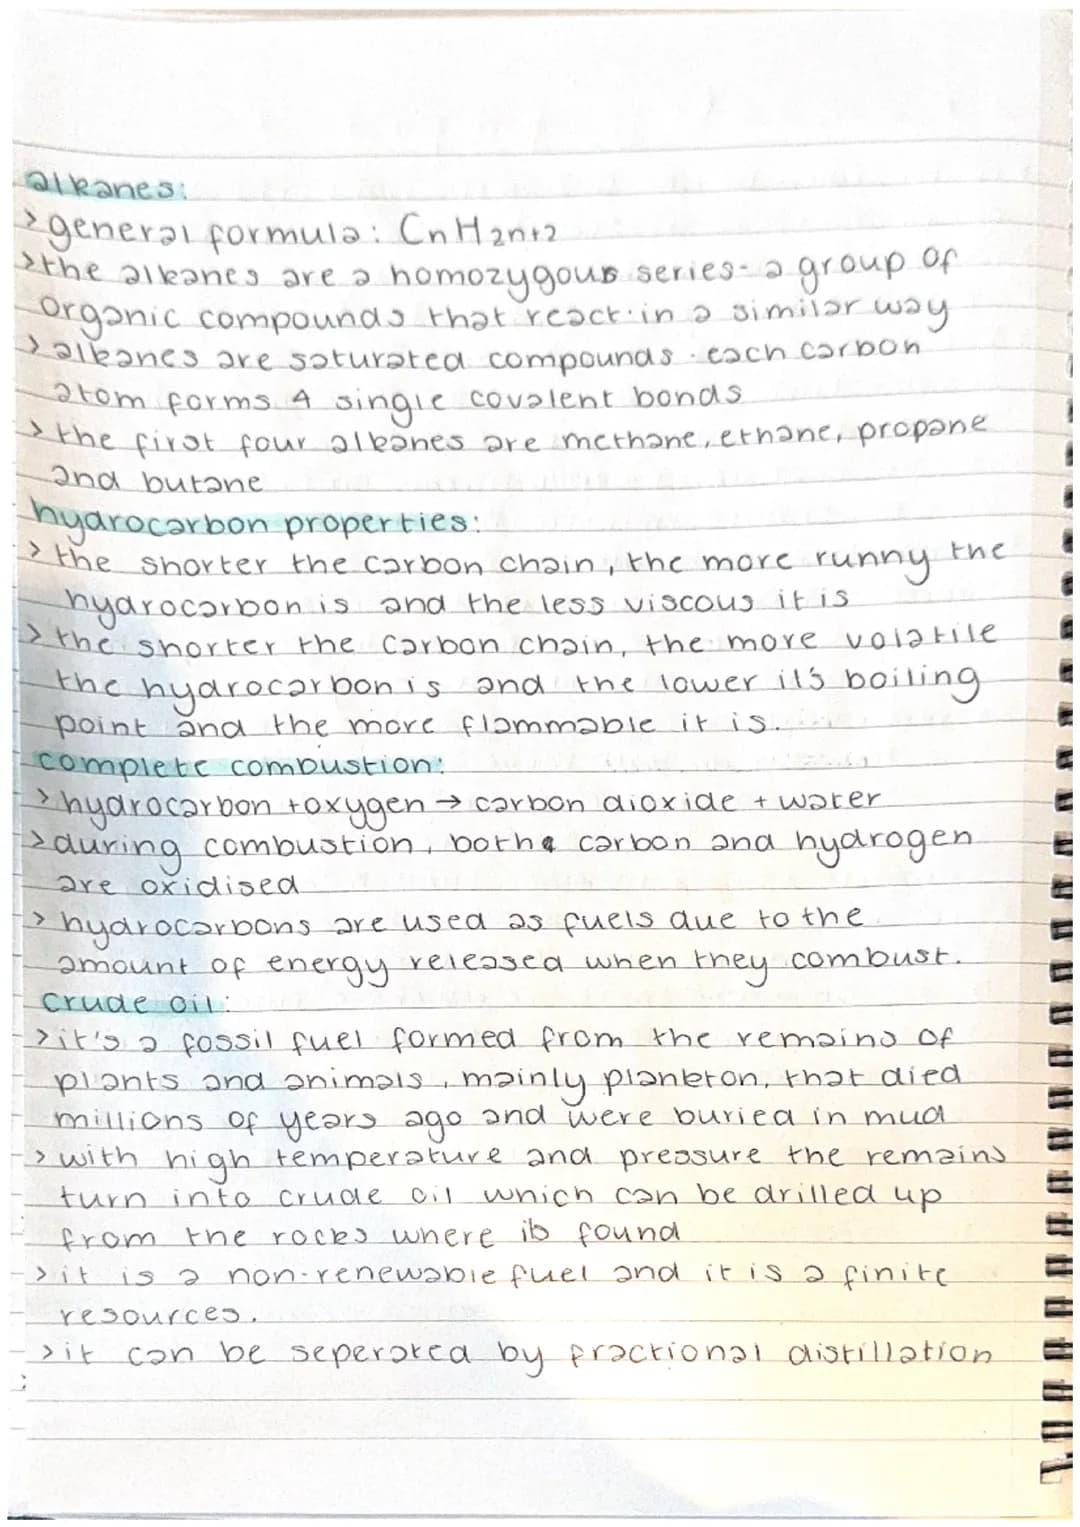 alkanes:
> general formula: CnH2n+2
> the alkanes are a homozygous series- a group of
organic compounds that react in a similar way
> alkanes are saturated compounds. each carbon
atom forms 4 single covalent bonds
> the first four alkanes are methane, ethane, propane
and butane
hydrocarbon properties:
> the shorter the carbon chain, the more runny the
hydrocarbon is and the less viscous it is
> the shorter the carbon chain, the more volatile
the hydrocarbon is and the lower it's boiling
point and the more flammable it is.
complete combustion:
> hydrocarbon + oxygen → carbon dioxide + water
> during combustion, both carbon and hydrogen
are oxidised
> hydrocarbons are used as fuels due to the
amount of energy released when they combust.
crude oil:
> it's a fossil fuel formed from the remains of
plants and animals, mainly plankton, that died
millions of years ago and were buried in mud
> with high temperature and pressure the remains
turn into crude oil which can be drilled up
from the rocks where is found
> it is a non-renewable fuel and it is a finite
resources.
> it can be seperated by fractional distillation